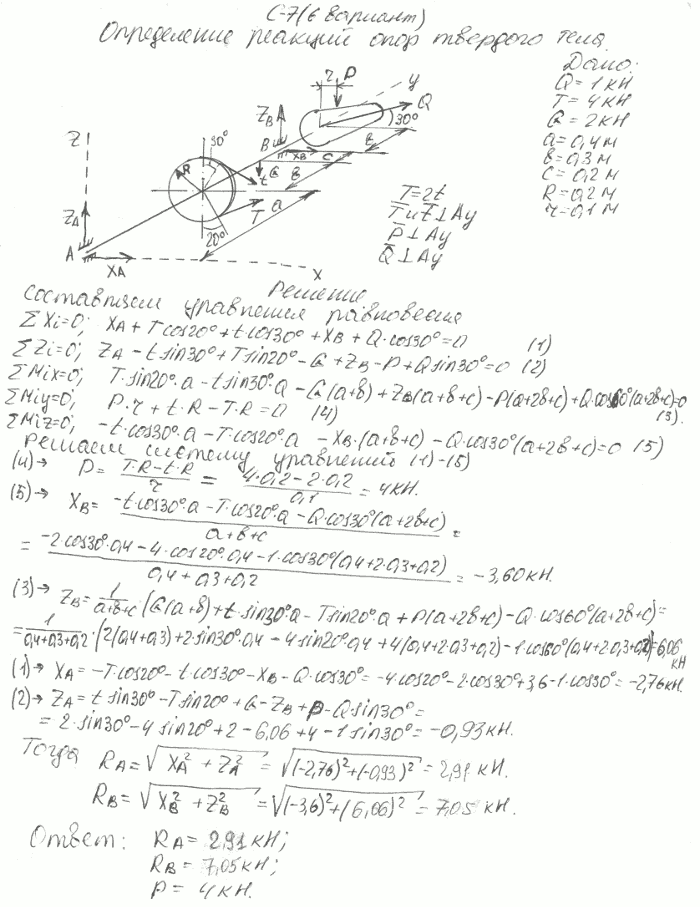 С-7 (6 вариант)
Определение реакций опор твердого тела.
Дано:
Q = 1 кН
T = 4 кН
G = 2кН
a = 0,4 м
b = 0,3 м
c = 0,2 м
R = 0,2 м
r = 0,1 м
T = 2t
T̄ и t̄ ⊥ Ay
P̄ ⊥ Ay
Q̄ ⊥ Ay
Z
ZA
A
XA
X
30°
R
20°
T
t
G
a
b
c
b
B
ZB
XB
r
P
y
Q
30°
Решение
Составляем уравнения равновесия
ΣXi=0; XA + T cos20° + t·cos30° + XB + Q·cos30° = 0 (1)
ΣZi=0; ZA - t·sin30° + T sin20° - G + ZB - P + Q sin30° = 0 (2)
ΣMix=0; T·sin20°·a - t sin30°·a - G(a+b) + ZB(a+b+c) - P(a+2b+c) + Q·cos60°(a+2b+c)=0 (3).
ΣMiy=0; P·r + t·R - T·R = 0 (4)
ΣMiz=0; -t·cos30°·a - T·cos20°·a - XB·(a+b+c) - Q·cos30°(a+2b+c)=0 (5)
Решаем систему уравнений (1)-(5)
(4)→ P = (T·R - t·R)/r = (4·0,2 - 2·0,2)/0,1 = 4кН.
(5)→ XB = (-t·cos30°·a - T·cos20°·a - Q·cos30°(a+2b+c))/(a+b+c) =
= (-2·cos30°·0,4 - 4·cos20°·0,4 - 1·cos30°(0,4+2·0,3+0,2))/(0,4+0,3+0,2) = -3,60кН.
(3)→ ZB = 1/(a+b+c)·(G(a+b) + t·sin30°·a - T sin20°·a + P(a+2b+c) - Q·cos60°(a+2b+c)=
= 1/(0,4+0,3+0,2)·(2(0,4+0,3)+2·sin30°·0,4 - 4 sin20°·0,4 + 4(0,4+2·0,3+0,2) - 1·cos60°(0,4+2·0,3+0,2)=6,06 кН
(1)→ XA = -T·cos20° - t·cos30° - XB - Q·cos30° = -4·cos20° - 2·cos30° + 3,6 - 1·cos30° = -2,76кН.
(2)→ ZA = t sin30° - T sin20° + G - ZB + P - Q sin30° =
= 2·sin30° - 4 sin20° + 2 - 6,06 + 4 - 1 sin30° = -0,93кН.
Тогда RA = √(XA² + ZA²) = √((-2,76)² + (-0,93)²) = 2,91 кН.
RB = √(XB² + ZB²) = √((-3,6)² + (6,06)²) = 7,05 кН.
Ответ: RA = 2,91 кН;
RB = 7,05 кН;
P = 4 кН.